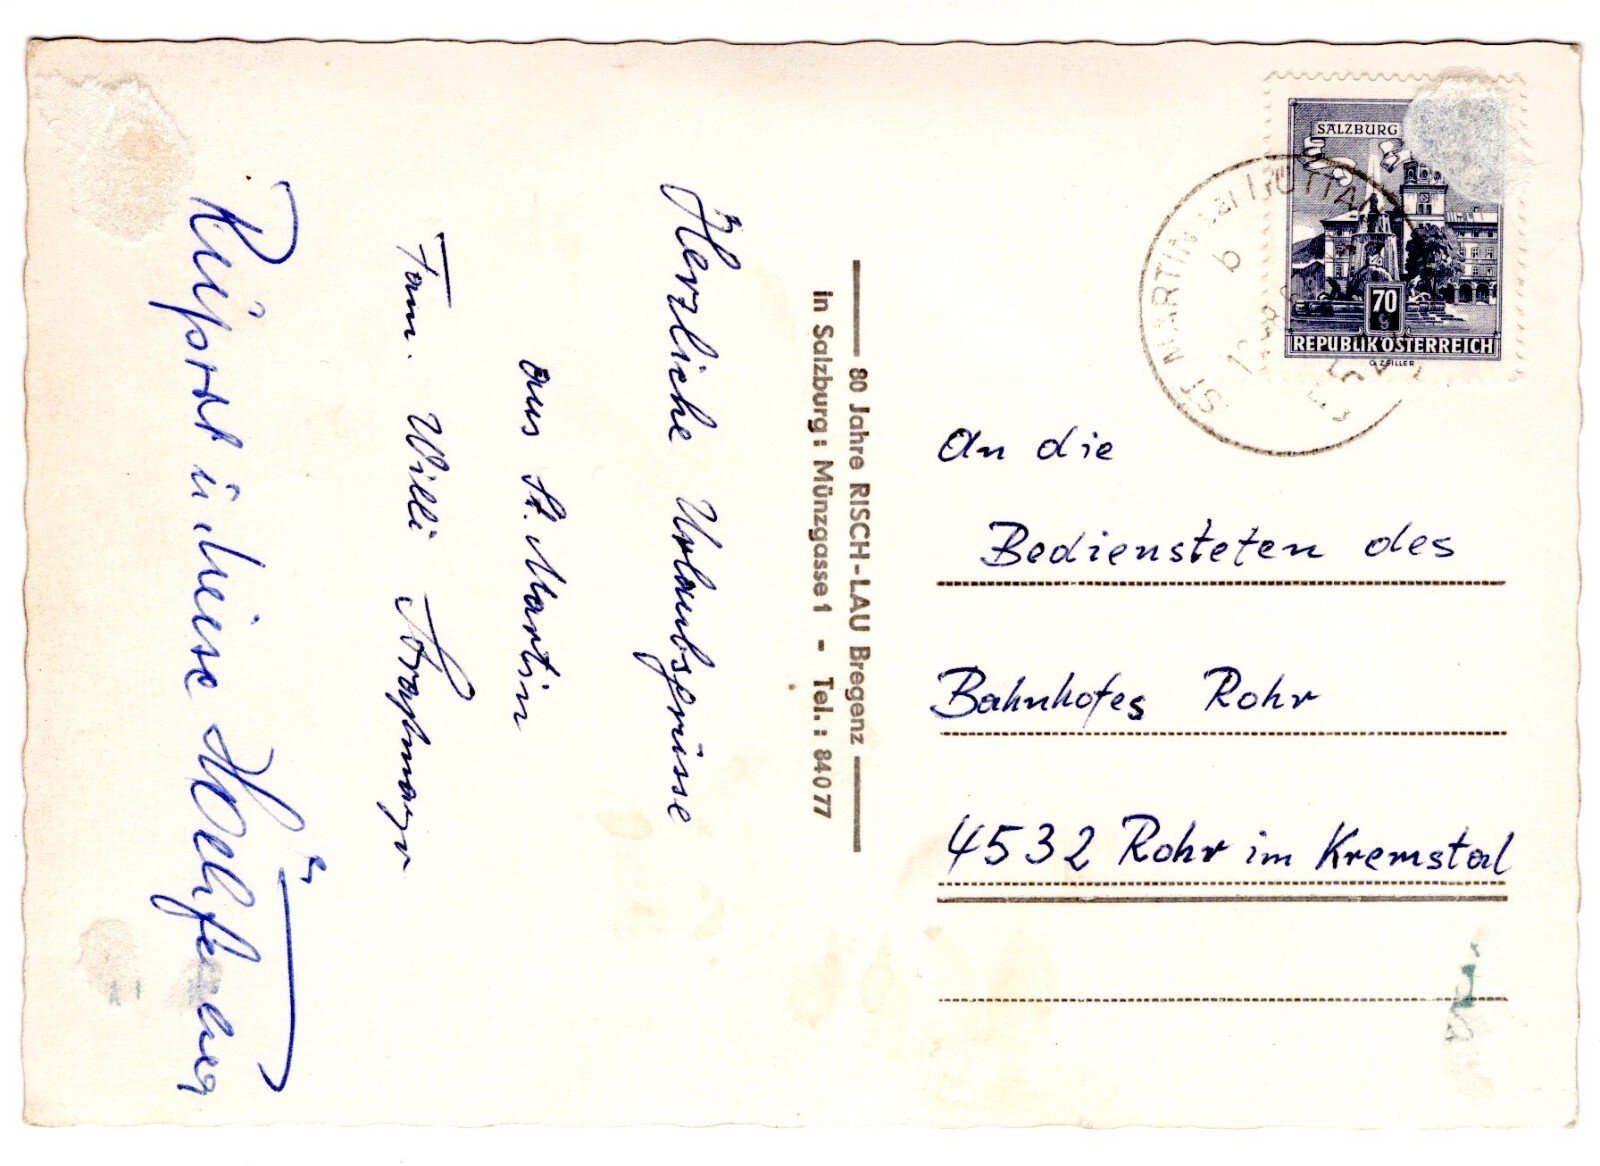 Herzliche Urlaubsgrüsse
aus St. Martin
Fam. Willi
80 Jahre RISCH-LAU Bregenz
in Salzburg: Münzgasse 1 - Tel.: 84077
SALZBURG
70
g
REPUBLIK ÖSTERREICH
ST. MARTIN
b
An die
Bediensteten des
Bahnhofes Rohr
4532 Rohr im Kremstal